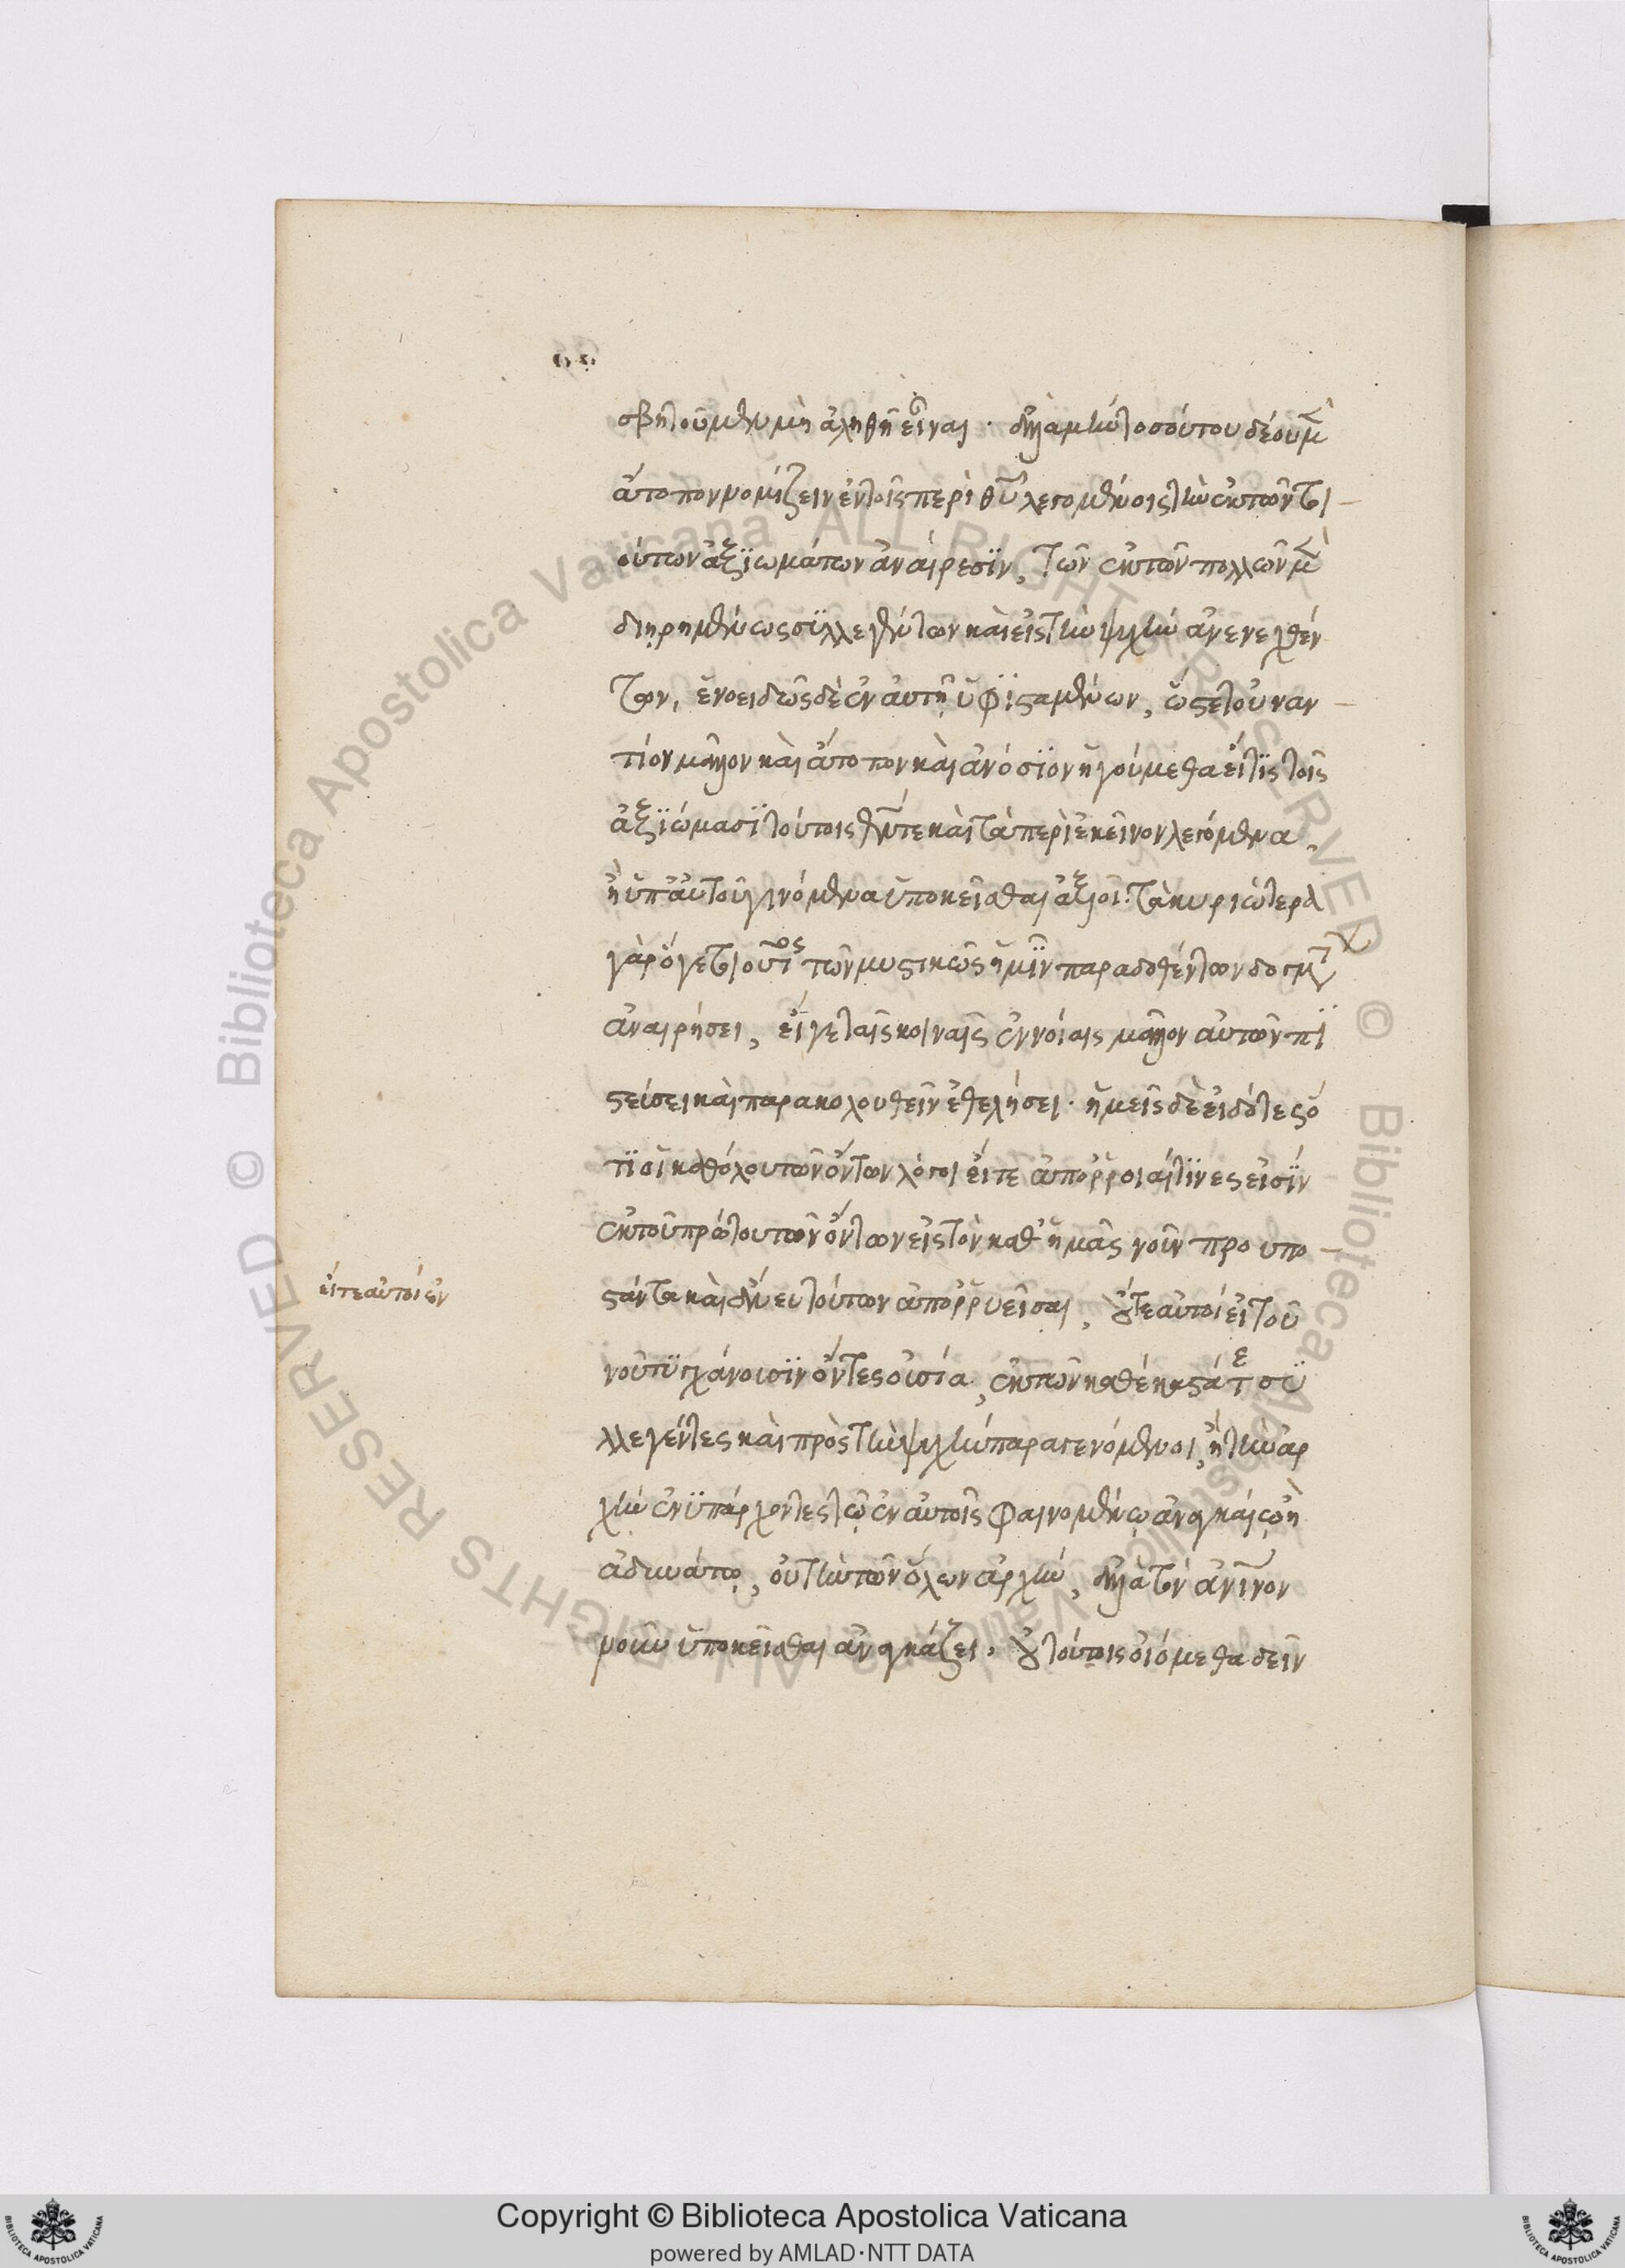 σβητοῦμεν μὴ ἀληθῆ εἶναι · ἀλλὰ μὴν τοσούτου δέομεν
ἄτοπον νομίζειν ἐν τοῖς περὶ θεοῦ λεγομένοις τὴν ἐκ τῶν τοι
ούτων ἀξιωμάτων ἀναίρεσιν, τῶν ἐκ τῶν πολλῶν μὲν
διῃρημένως συλλεγέντων καὶ εἰς τὴν ψυχὴν ἀνενεχθέν
των, ἑνοειδῶς δὲ ἐν αὐτῇ ὑφισταμένων, ὥστε τοὐναν
τίον μᾶλλον καὶ ἄτοπον καὶ ἀνόσιον ἡγούμεθα εἴ τις τοῖς
ἀξιώμασι τούτοις θεόν τε καὶ τὰ περὶ ἐκεῖνον λεγόμενα,
ἢ ὑπ' αὐτοῦ γινόμενα ὑποκεῖσθαι ἀξιοῖ· τὰ κυριώτερα
γὰρ ὅγε τοιοῦτος τῶν μυστικῶς ἡμῖν παραδοθέντων δογμάτων
ἀναιρήσει, εἴγε ταῖς κοιναῖς ἐννοίαις μᾶλλον αὐτῶν πι
στεύσει καὶ παρακολουθεῖν ἐθελήσει · ἡμεῖς δὲ εἰδότες ὅ
τι οἱ καθόλου τῶν ὄντων λόγοι εἴτε ἀπόρροιαί τινες εἰσὶν
ἐκ τοῦ πρώτου τῶν ὄντων εἰς τὸν καθ' ἡμᾶς νοῦν προυπο
στάντα καὶ ἄνευ τούτων ἀπορρυεῖσαι, εἴτε αὐτοί εἰ τοῦ
εἴτε αὐτοὶ ἐν
νοῦ τυγχάνουσιν ὄντες οὐσία, ἐκ τῶν καθέκαστά τε συ
λλεγέντες καὶ πρὸς τὴν ψυχὴν παραγενόμενοι, ἢ τὴν ἀρ
χὴν ἐνυπάρχοντες τῷ ἐν αὐτοῖς φαινομένῳ ἀναγκαίῳ ἢ
ἀδυνάτῳ, οὐ τὴν τῶν ὅλων ἀρχὴν, ἀλλὰ τὸν ἀν̅ι̅νον
νοῦν ὑποκεῖσθαι ἀναγκάζει · οὐ τούτοις οἰόμεθα δεῖν